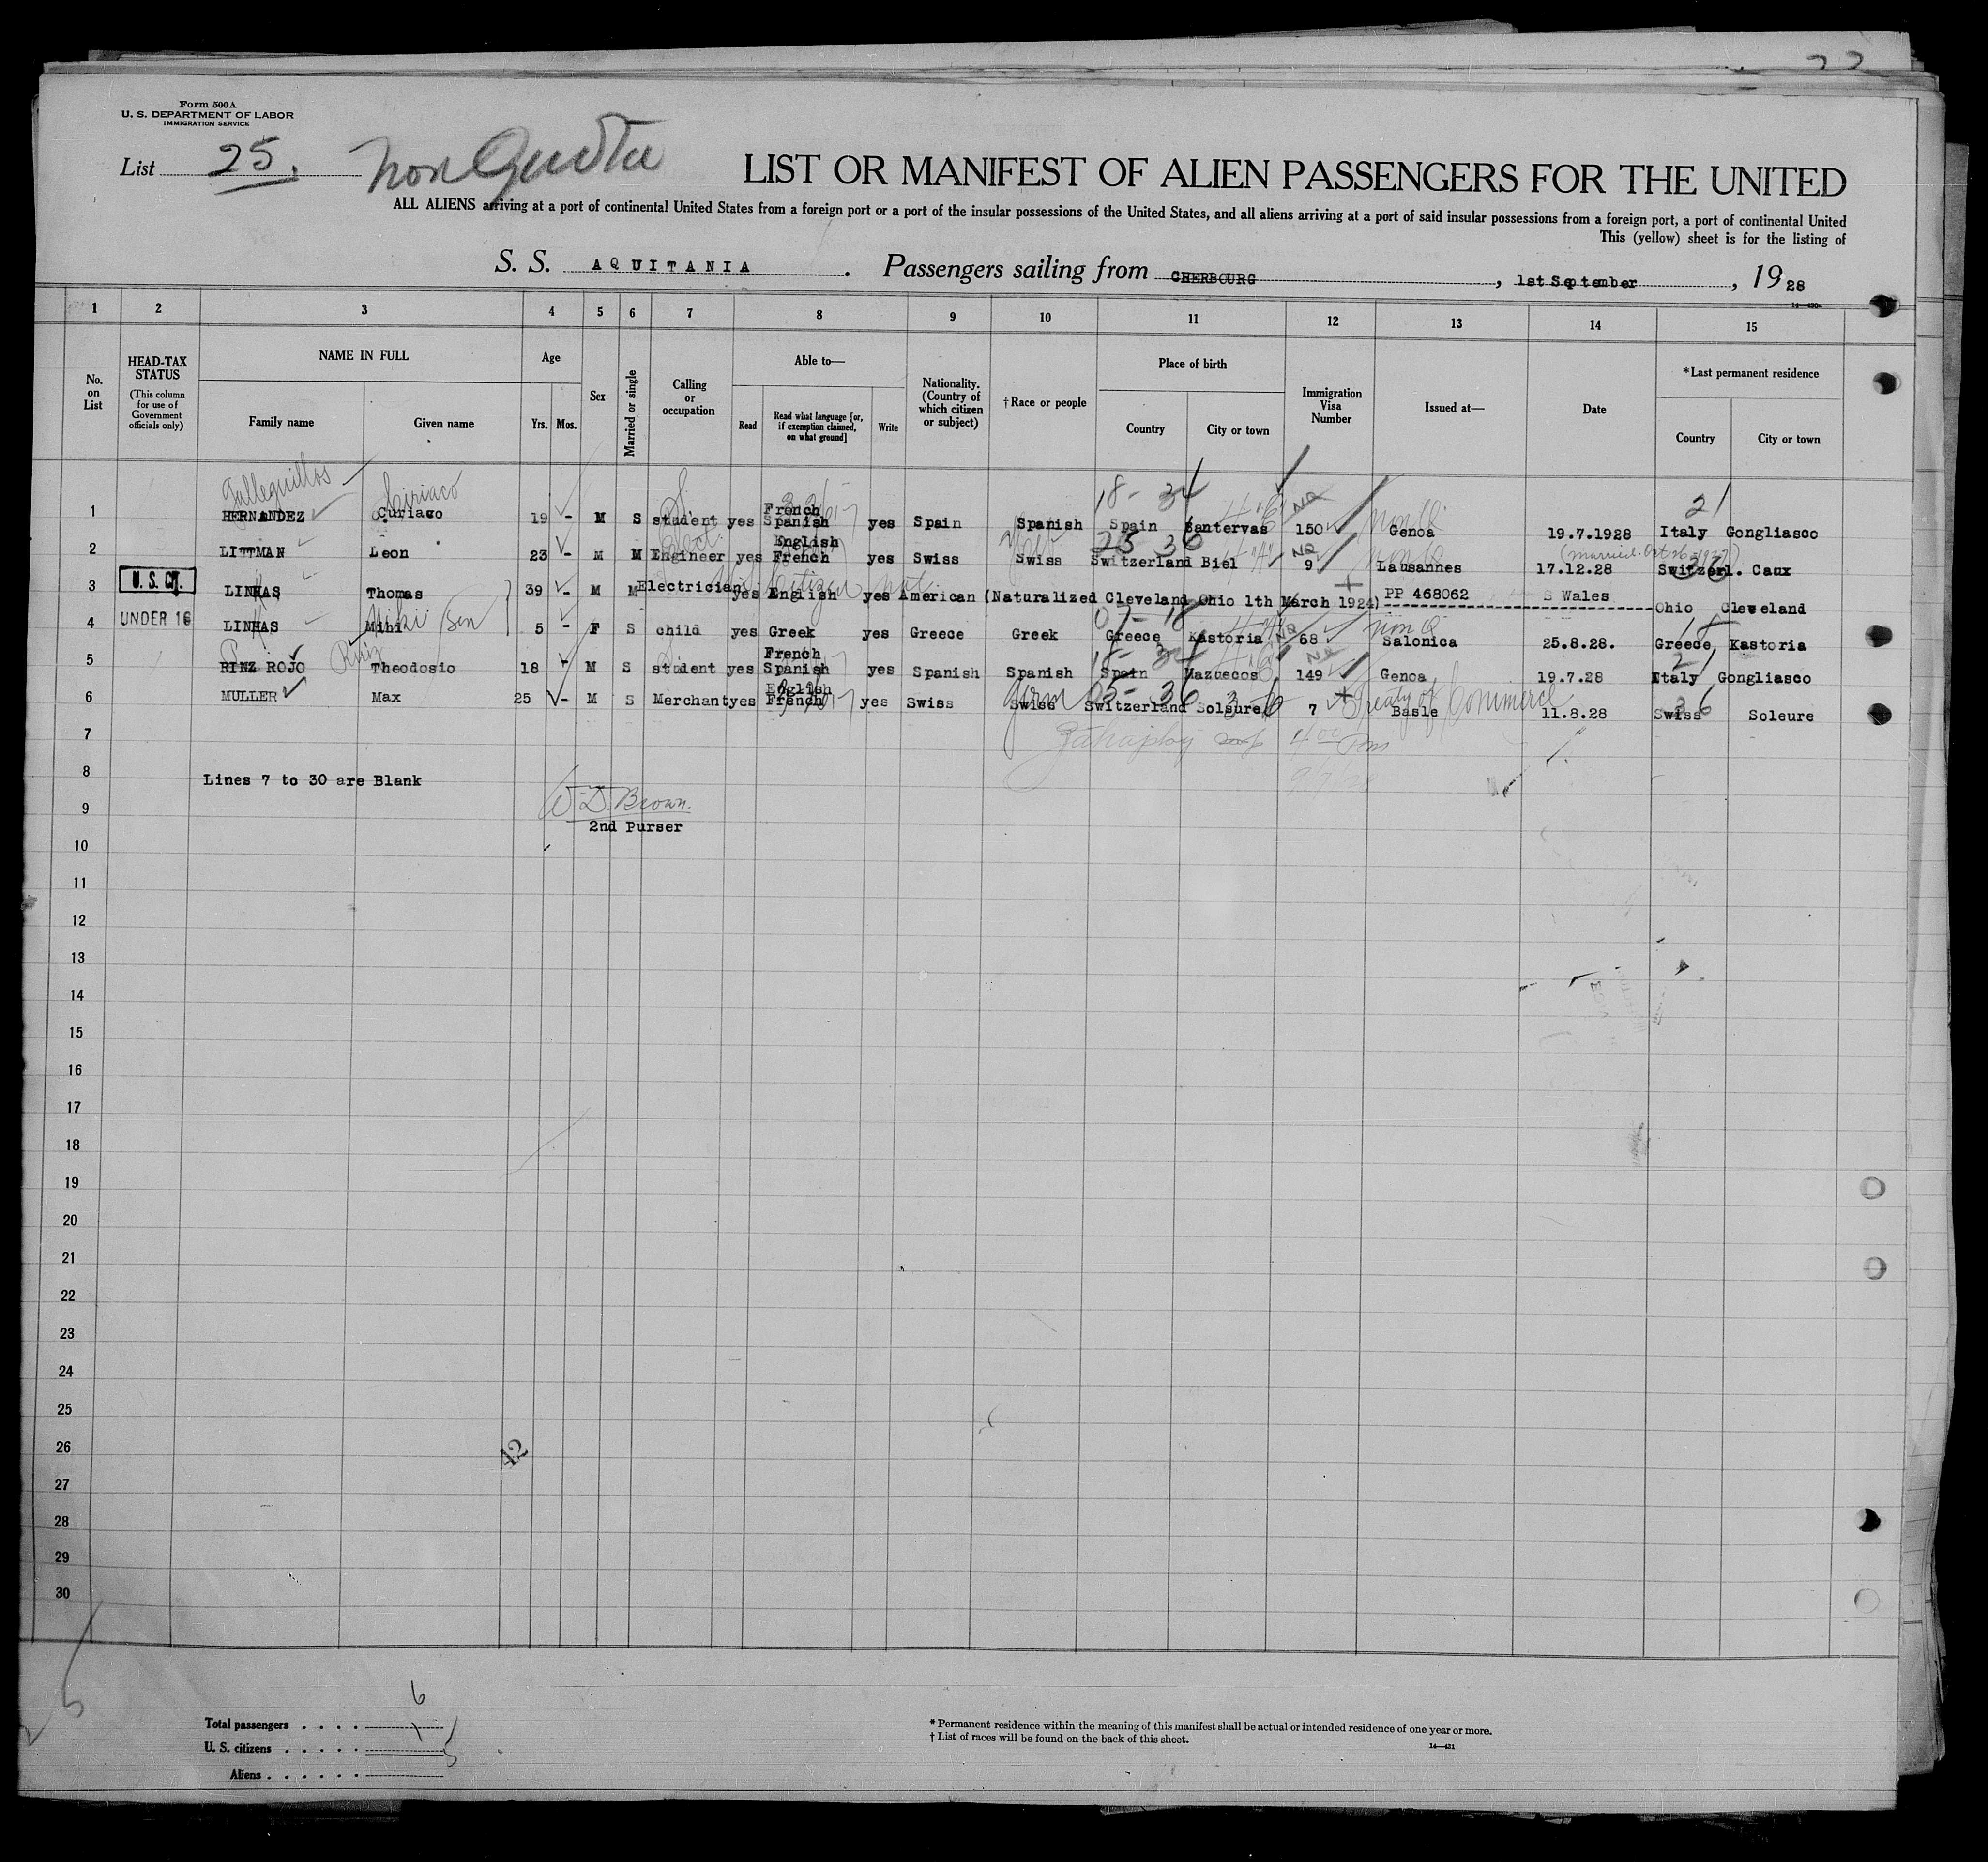 Form 500A
U. S. DEPARTMENT OF LABOR
IMMIGRATION SERVICE
List 25. Non Quota
LIST OR MANIFEST OF ALIEN PASSENGERS FOR THE UNITED
ALL ALIENS arriving at a port of continental United States from a foreign port or a port of the insular possessions of the United States, and all aliens arriving at a port of said insular possessions from a foreign port, a port of continental United
This (yellow) sheet is for the listing of
S. S. AQUITANIA. Passengers sailing from CHERBOURG, 1st September, 1928
1 2 3 4 5 6 7 8 9 10 11 12 13 14 15
No. on List
HEAD-TAX STATUS (This column for use of Government officials only)
NAME IN FULL
Family name Given name
Age
Yrs. Mos.
Sex
Married or single
Calling or occupation
Able to—
Read Read what language [or, if exemption claimed, on what ground] Write
Nationality. (Country of which citizen or subject)
†Race or people
Place of birth
Country City or town
Immigration Visa Number
Issued at—
Date
*Last permanent residence
Country City or town
Galleguillos Ciriaco
1 HERNANDEZ Curiaco 19 - M S student yes French Spanish yes Spain Spanish Spain Santervas 150 Genoa 19.7.1928 Italy Gongliasco
18 - 34 NQ Non Q 21
2 LITTMAN Leon 23 - M M Engineer yes English French yes Swiss Swiss Switzerland Biel 9 Lausannes 17.12.28 Switzerl. Caux
36 NQ Non Q (Married Oct 26 1927)
3 U. S. CIT. LINHAS Thomas 39 - M M Electrician yes English yes American (Naturalized Cleveland Ohio 1th March 1924) PP 468062 S Wales Ohio Cleveland
4 UNDER 16 LINHAS Mihi 5 - F S child yes Greek yes Greece Greek Greece Kastoria 68 Salonica 25.8.28. Greece Kastoria
07 - 18 NQ Non Q 18
5 RINZ ROJO Ruiz Theodosio 18 - M S student yes French Spanish yes Spanish Spanish Spain Mazuecos 149 Genoa 19.7.28 Italy Gongliasco
18 - 34 NQ 21
6 MULLER Max 25 - M S Merchant yes English French yes Swiss Swiss Switzerland Soleure 7 Basle 11.8.28 Swiss Soleure
Germ 05 - 36 Treaty of Commerce 36
7
8 Lines 7 to 30 are Blank
W. D. Brown.
9 2nd Purser
10
11
12
13
14
15
16
17
18
19
20
21
22
23
24
25
26 42
27
28
29
30
Total passengers . . . . 6
U. S. citizens . . . . . 1
Aliens . . . . . . 5
* Permanent residence within the meaning of this manifest shall be actual or intended residence of one year or more.
† List of races will be found on the back of this sheet.
14—431